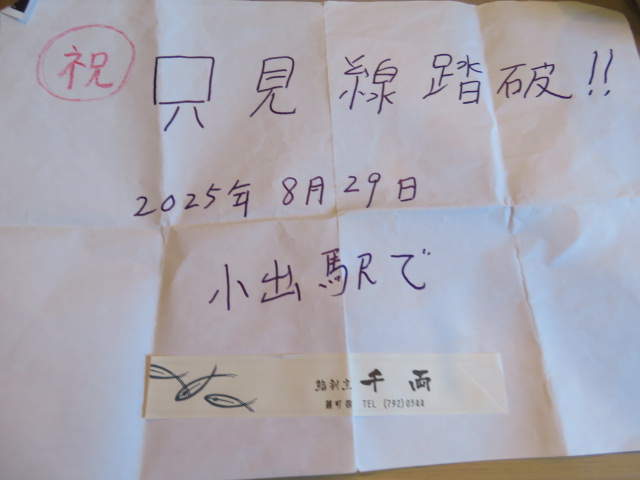 祝 只見線踏破!!
2025年 8月29日
小出駅で
千両
TEL (792)0544